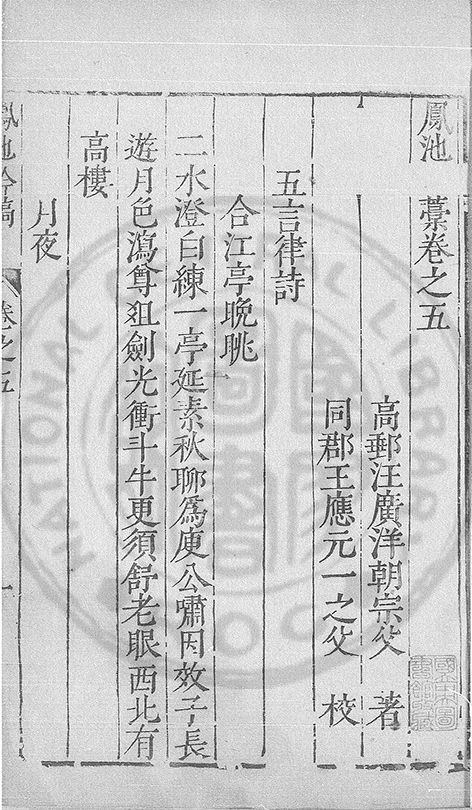 鳳池 藁卷之五
高郵汪廣洋朝宗父 著
同郡王應元一之父 校
五言律詩
合江亭晚眺
二水澄白練一亭延素秋聊爲庾公嘯因效子長
遊月色瀉尊俎劍光衝斗牛更須舒老眼西北有
高樓
月夜
鳳池吟稿 卷之五 一